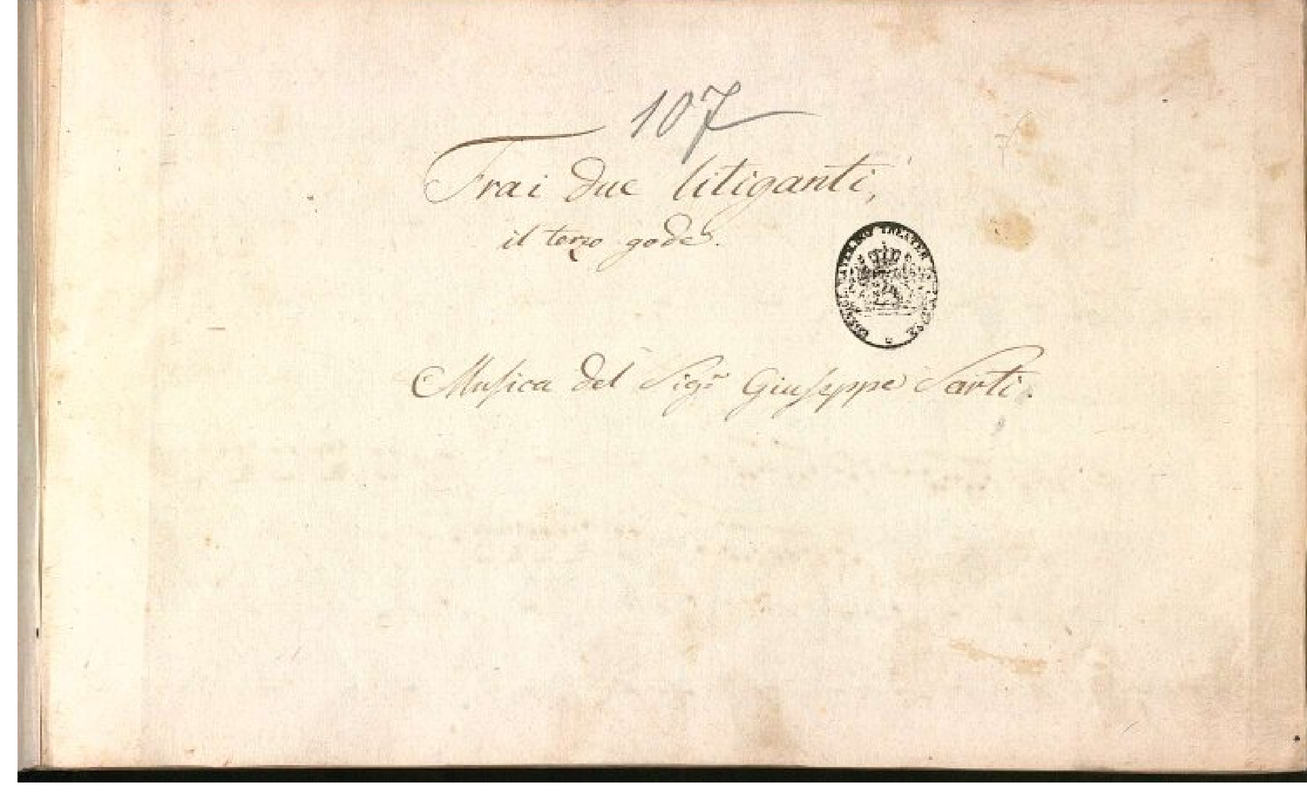 107
Frai due litiganti,
il terzo gode.
Musica del Sigr Giuseppe Sarti.